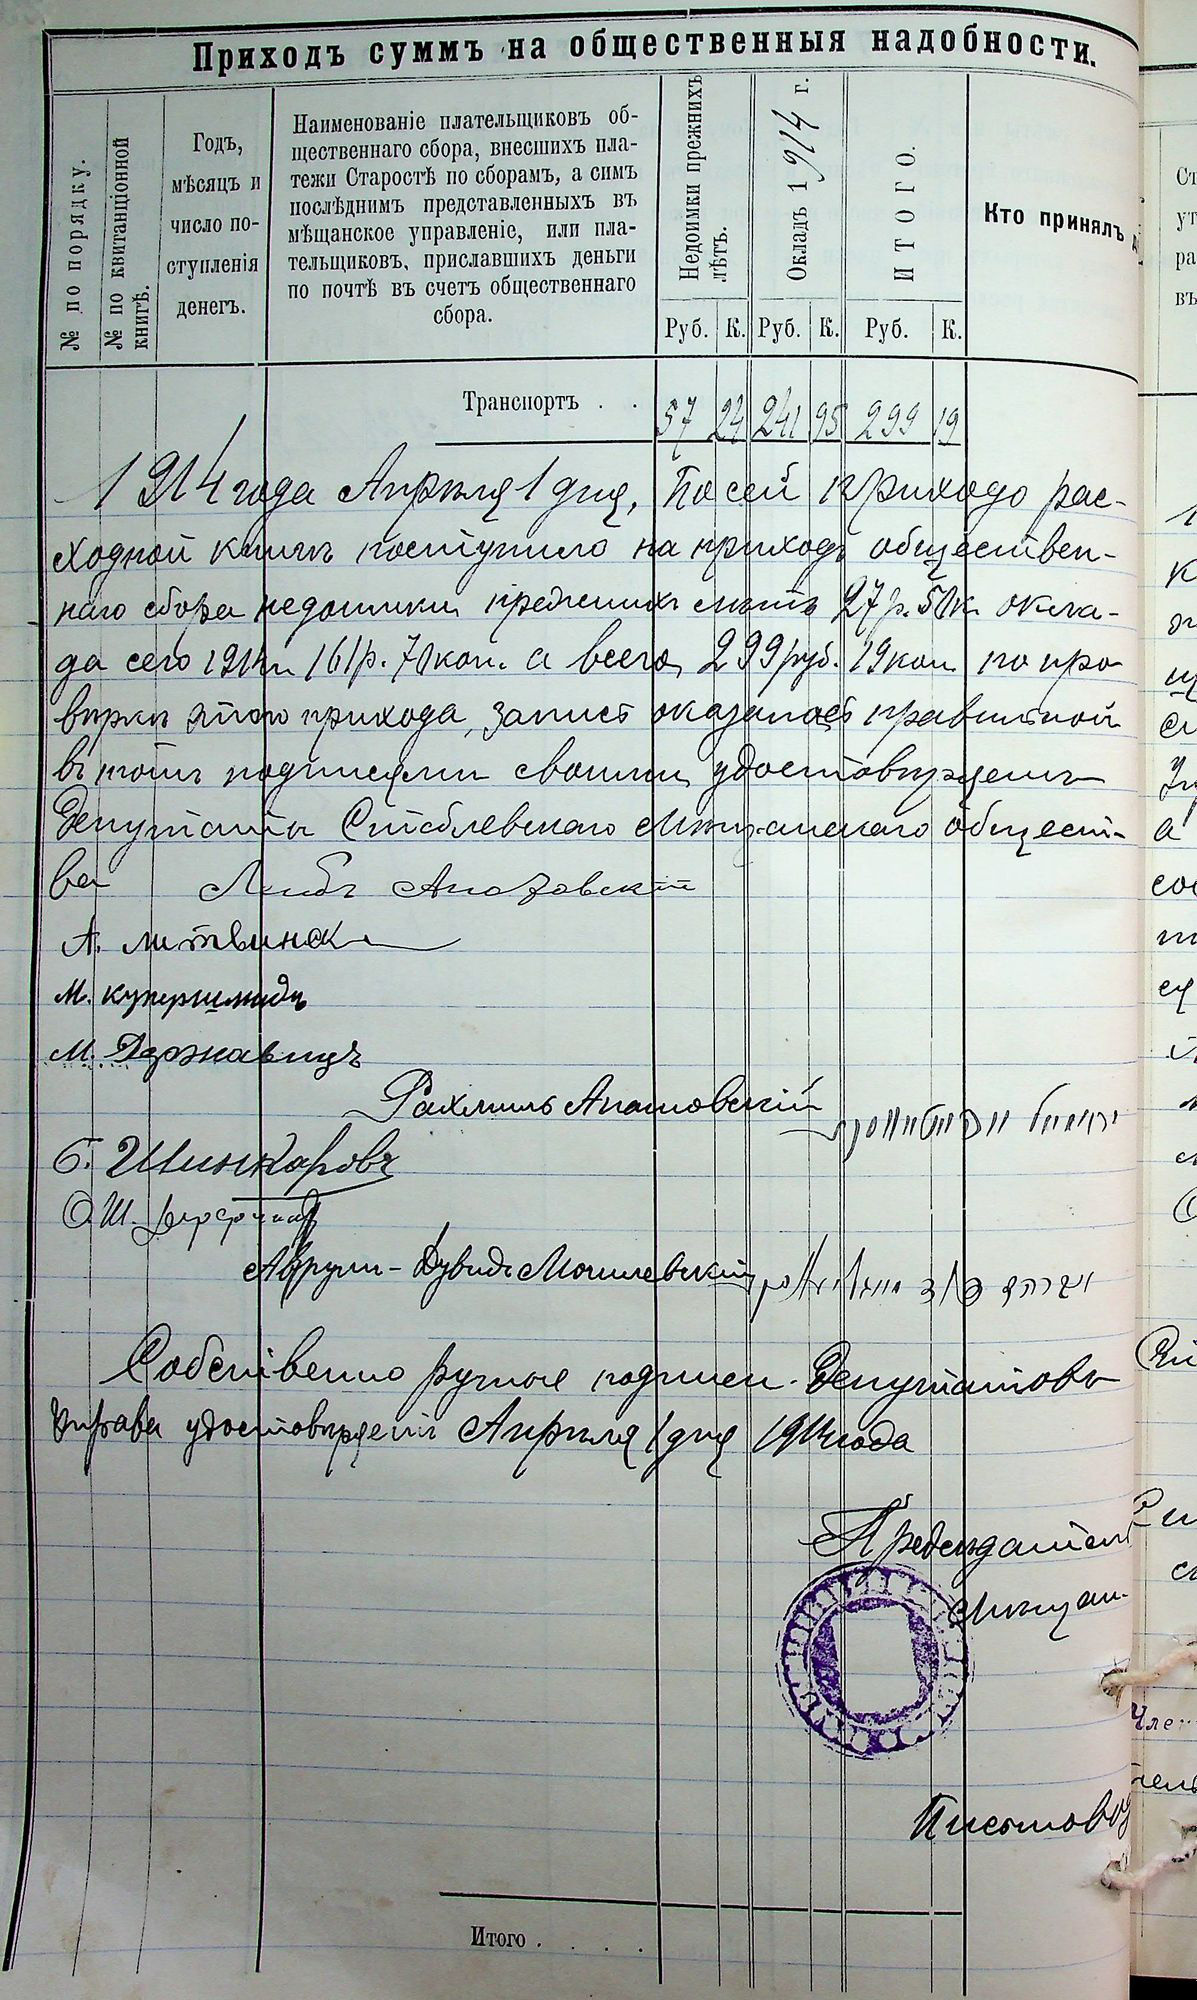 Приходъ суммъ на общественныя надобности.
№ по порядку.
№ по квитанціонной книгѣ.
Годъ,
мѣсяцъ и
число по-
ступленія
денегъ.
Наименованіе плательщиковъ об-
щественнаго сбора, внесшихъ пла-
тежи Старостѣ по сборамъ, а симъ
послѣднимъ представленныхъ въ
мѣщанское управленіе, или пла-
тельщиковъ, приславшихъ деньги
по почтѣ въ счетъ общественнаго
сбора.
Недоимки прежнихъ
лѣтъ.
Окладъ 1914 г.
ИТОГО.
Кто принялъ
Руб. К. Руб. К. Руб. К.
Транспортъ . . 57 24 241 95 299 19
1914 года Апрѣля 1 дня, По сей приходо рас-
ходной книгѣ поступило на приходъ обществен-
наго сбора недоимки прежнихъ лѣтъ 27 р. 50 к. окла-
да сего 1914 г. 161 р. 70 коп. а всего 299 руб. 19 коп. по про
вѣрки этого прихода, запись оказалась правильной
въ томъ подписями своими удостовѣряемъ
Депутаты Стеблевскаго Мѣщанскаго общест-
ва
А. Литвинск
М. Купершмидъ
М. Державецъ
Рахмиль
Б. Шинкаровъ
О.Ш.
Аврумъ-Дувидъ Могилевскій
Собственно ручные подписи Депутатовъ
Управа удостовѣряетъ Апрѣля 1 дня 1914 года
Предсѣдатель
Мѣщан-
Письмовод
Итого . . . .